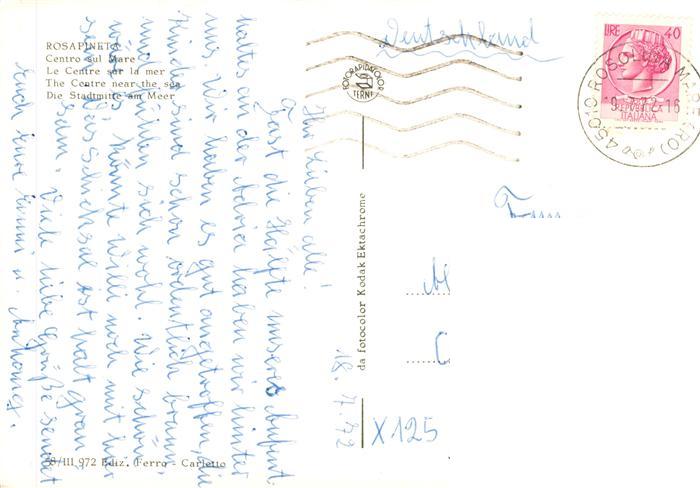 ROSAPINETA
Centro sul Mare
Le Centre sur la mer
The Centre near the sea
Die Stadtmitte am Meer
Deutschland
LIRE 40
ITALIANA
45010 ROSOLINA MARE (RO)
FOTORAPIDACOLOR
TERNI
18. 7. 72
Ihr Lieben alle!
Fast die Hälfte unseres Aufent-
haltes an der Adria haben wir hinter
uns. Wir haben es gut angetroffen, die
Kinder sind schon ordentlich braun
und fühlen sich wohl. Wie schön
wär's, könnte Willi noch mit hier
sein. Das Schicksal ist halt grau-
sam. Viele liebe Grüße sendet
Euch Eure
da fotocolor Kodak Ektachrome
X125
/III 972 Ediz. Ferro - Carletto